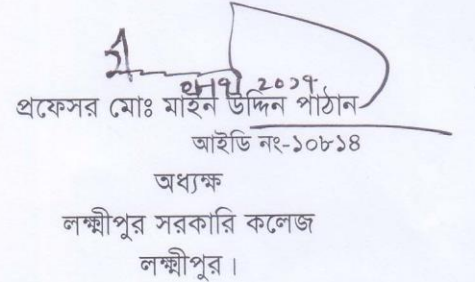 ২০১৭
প্রফেসর মোঃ মাইন উদ্দিন পাঠান
আইডি নং-১০৮১৪
অধ্যক্ষ
লক্ষ্মীপুর সরকারি কলেজ
লক্ষ্মীপুর।